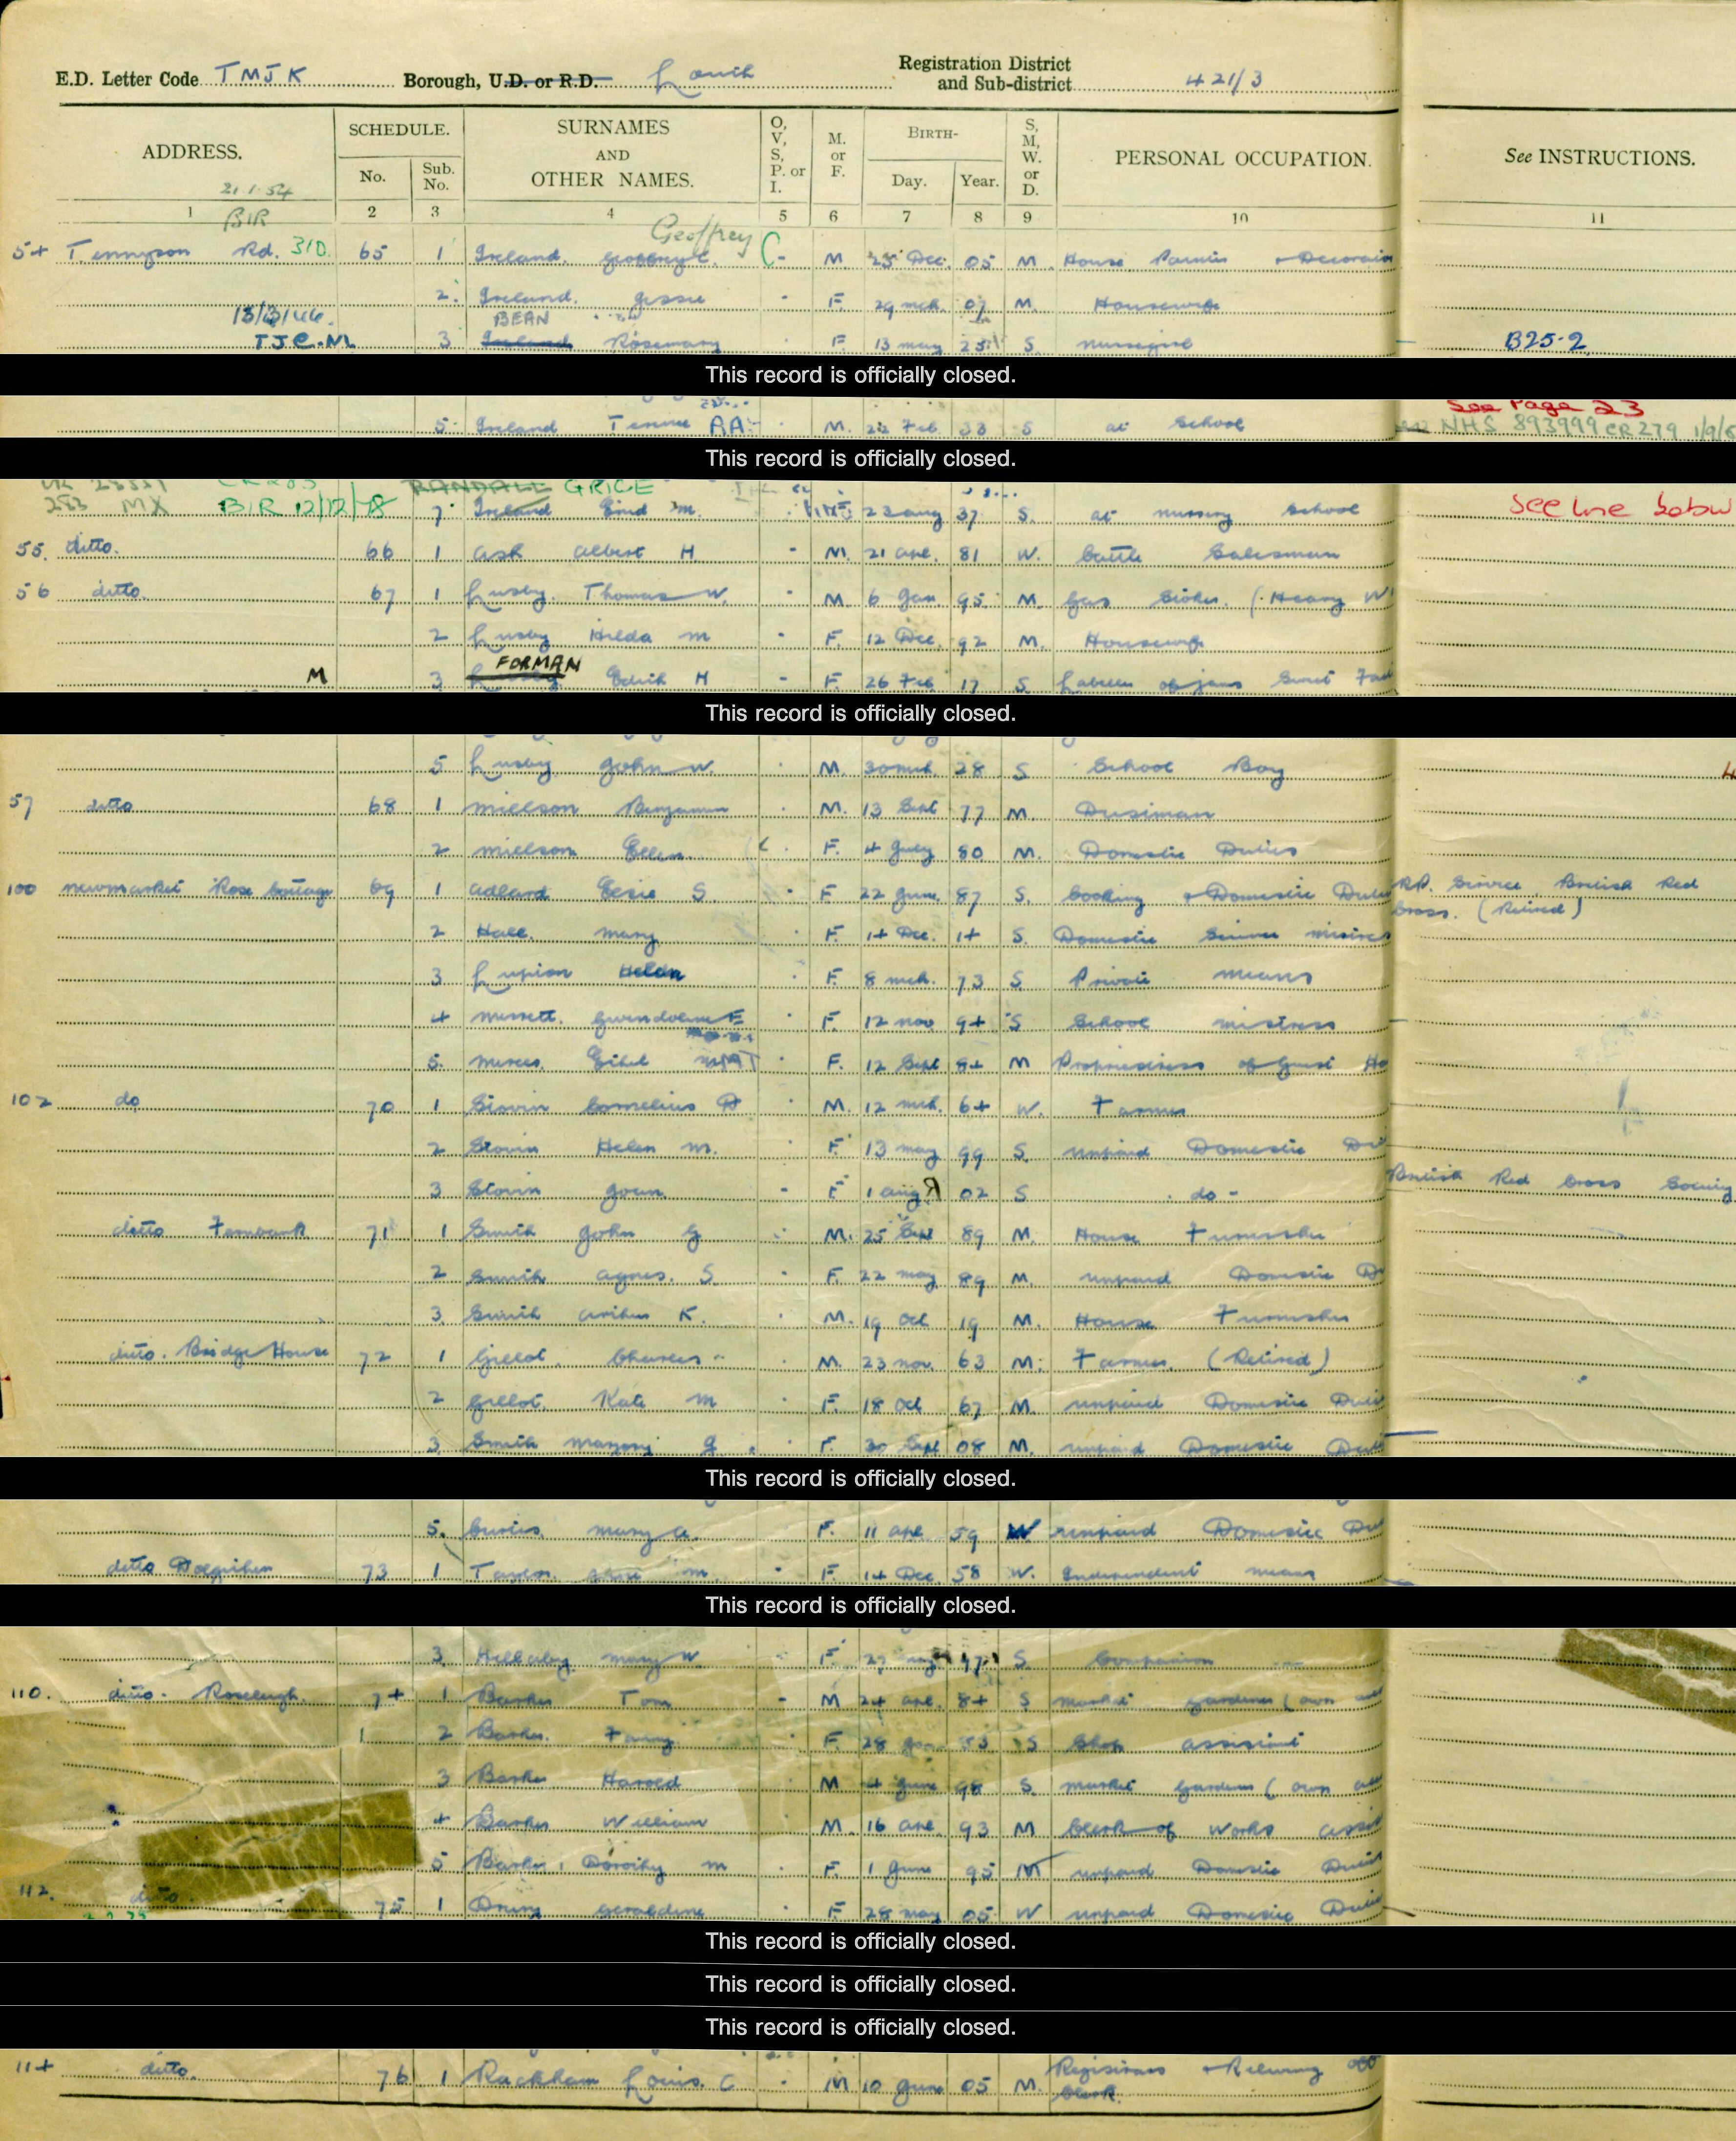 E.D. Letter Code TMJK Borough, U.D. or R.D. Louth Registration District and Sub-district 421/3
ADDRESS. SCHEDULE. No. Sub. No. SURNAMES AND OTHER NAMES. O, V, S, P. or I. M. or F. BIRTH- Day. Year. S, M, W. or D. PERSONAL OCCUPATION. See INSTRUCTIONS.
21.1.54
1 BIR 2 3 4 5 6 7 8 9 10 11
Geoffrey
54 Tennyson Rd. 310 65 1 Ireland. C - M. 25 Dec. 05 M. House Painter + Decorator
2. Ireland. Jessie - F. 29 mch. 07 M. Housewife
13/3/46. BEAN
TJC.ML 3 Ireland Rosemary F. 13 may S nursegirl B25-2
This record is officially closed.
See Page 23
5 Ireland AA M. 22 Feb. 33 S at School NHS 893999 CR 279
This record is officially closed.
RANDALL GRICE
283 MX BIR 12/12/78 7. Ireland Enid M. 23 aug 37 S. at nursery School See line below
55. ditto. 66 1 Ash Albert H - M. 21 apl. 81 W. Cattle Salesman
56 ditto. 67 1 Lusby. Thomas W. - M. 6 Jan. 95 M. Gas Stoker. (Heavy W
2 Lusby Hilda M - F. 12 Dec. 92 M. Housewife
FORMAN
M 3 Lusby Edith H - F. 26 Feb 17 S Labeller of jams Sweet
This record is officially closed.
5 Lusby John W. M. 30 mch. 28 S School Boy
57 ditto 68 1 Mielson Benjamin M. 13 Sept 77 M. Dustman
2 Mielson Ellen. F. 4 July 80 M. Domestic Duties
100 Newmarket Rose Cottage 69 1 Adlard Elsie S. - F 22 June. 87 S. Cooking + Domestic Duties British Red
Cross. (Retired)
2 Hall. Mary F. 14 Dec. 14 S. Domestic Science
3 Lupton Helen F. 8 mch. 73 S. Private means
4 Gwendoline E F. 12 nov 94 S School mistress
5. Ethel F. 12 Sept 84 M Proprietress of Guest Ho
102 do 70 1 Stovin Cornelius D M. 12 mch. 64 W. Farmer
2 Stovin Helen M. F 13 may 99 S. unpaid Domestic
3 Stovin Joan - F 1 aug 02 S . do - British Red Cross Society
ditto Fernbank 71 1 Smith John G M. 25 Sept 89 M. House Furnisher
2 Smith Agnes. S. - F. 22 may 89 M. unpaid Domestic D
3 Smith Arthur K. M. 19 Oct 19 M. House Furnisher
ditto. Bridge House 72 1 Gillot. Charles M. 23 nov. 63 M. Farmer. (Retired)
2 Gillot. Kate M F. 18 Oct 67 M. unpaid Domestic Duti
3 Smith Marjory F. 30 Sept 08 M. unpaid Domestic Duti
This record is officially closed.
5. Curtis Mary A. F. 11 apl 59 W unpaid Domestic Dut
ditto 73 1 M. - F. 14 Dec. 58 W. Independent means
This record is officially closed.
3. Hillaby Mary W. F. S. Companion
110. ditto. Roseleigh. 74 1 Barker Tom - M 24 apl. 84 S Market gardener (own
2 Barker. Fanny F. 28 S Shop assistant
3 Barker Harold M 4 June 98 S. Market gardener (own
4 Barker William M. 16 apl. 93 M Clerk of Works
5 Barker, Dorothy M F. 1 June 95 M unpaid Domestic Duti
112. ditto. 75 1 Geraldine F. 28 may 05 W unpaid Domestic Duti
This record is officially closed.
This record is officially closed.
This record is officially closed.
114 ditto. 76 1 Rackham Louis. C - M 10 June 05 M. Registrars + Relieving off
Clerk.